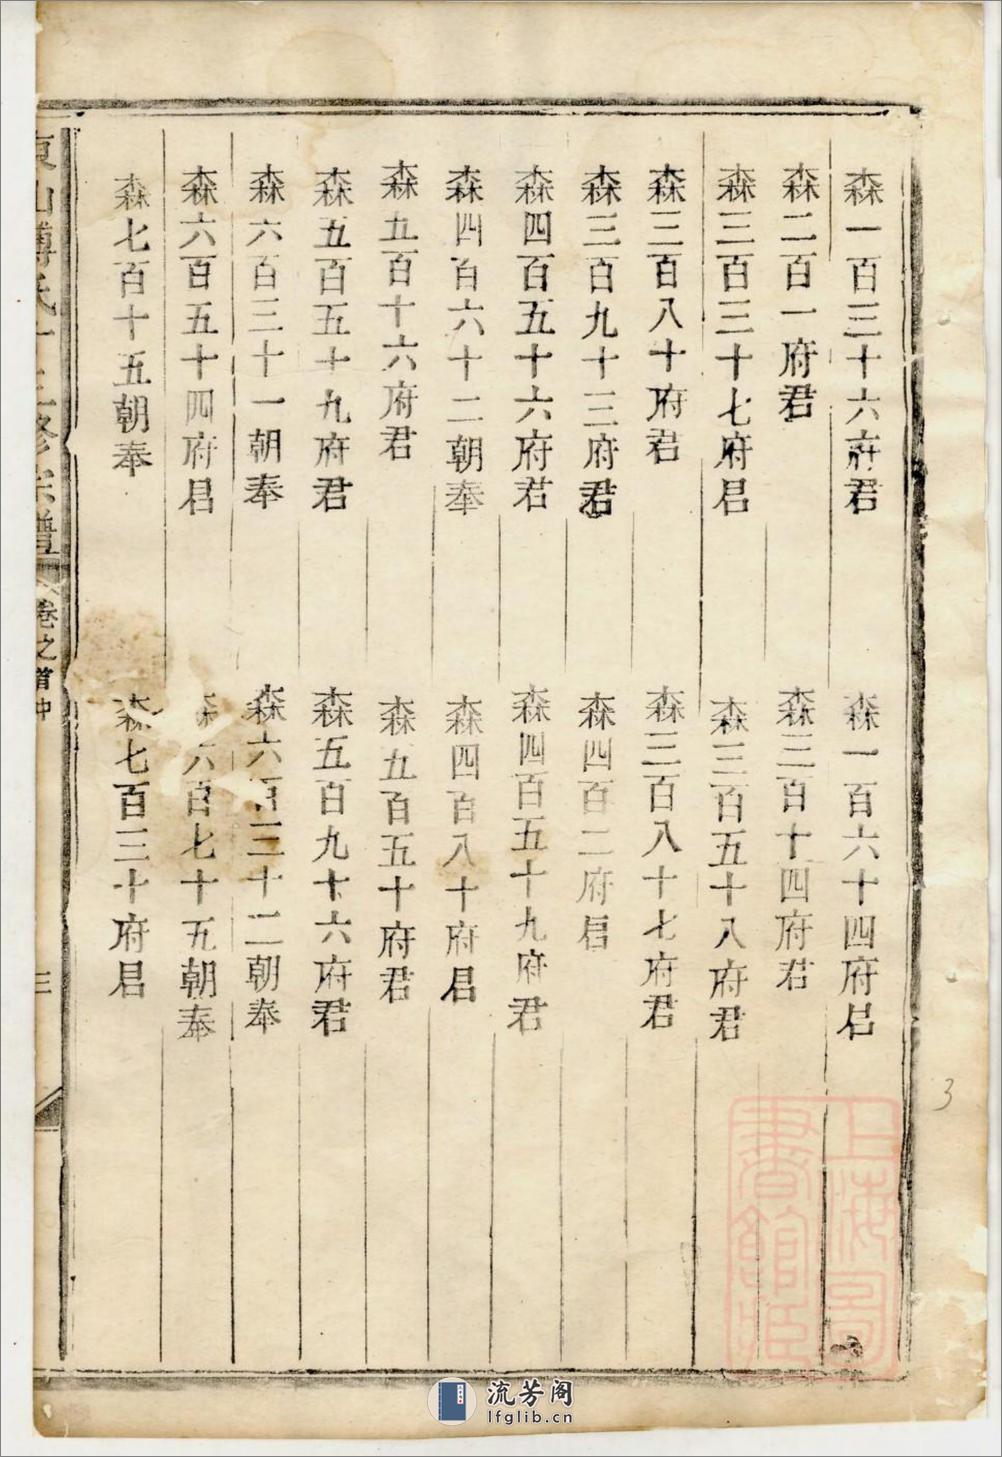 森一百三十六府君
森一百六十四府君
森二百一府君
森三百十四府君
森三百三十七府君
森三百五十八府君
森三百八十府君
森三百八十七府君
森三百九十三府君
森四百二府君
森四百五十六府君
森四百五十九府君
森四百六十二朝奉
森四百八十府君
森五百十六府君
森五百五十府君
森五百五十九府君
森五百九十六府君
森六百三十一朝奉
森六百三十二朝奉
森六百五十四府君
森六百七十五朝奉
森七百十五朝奉
森七百三十府君
卷之首中
三
上海圖書館藏
3
流芳阁
lfglib.cn